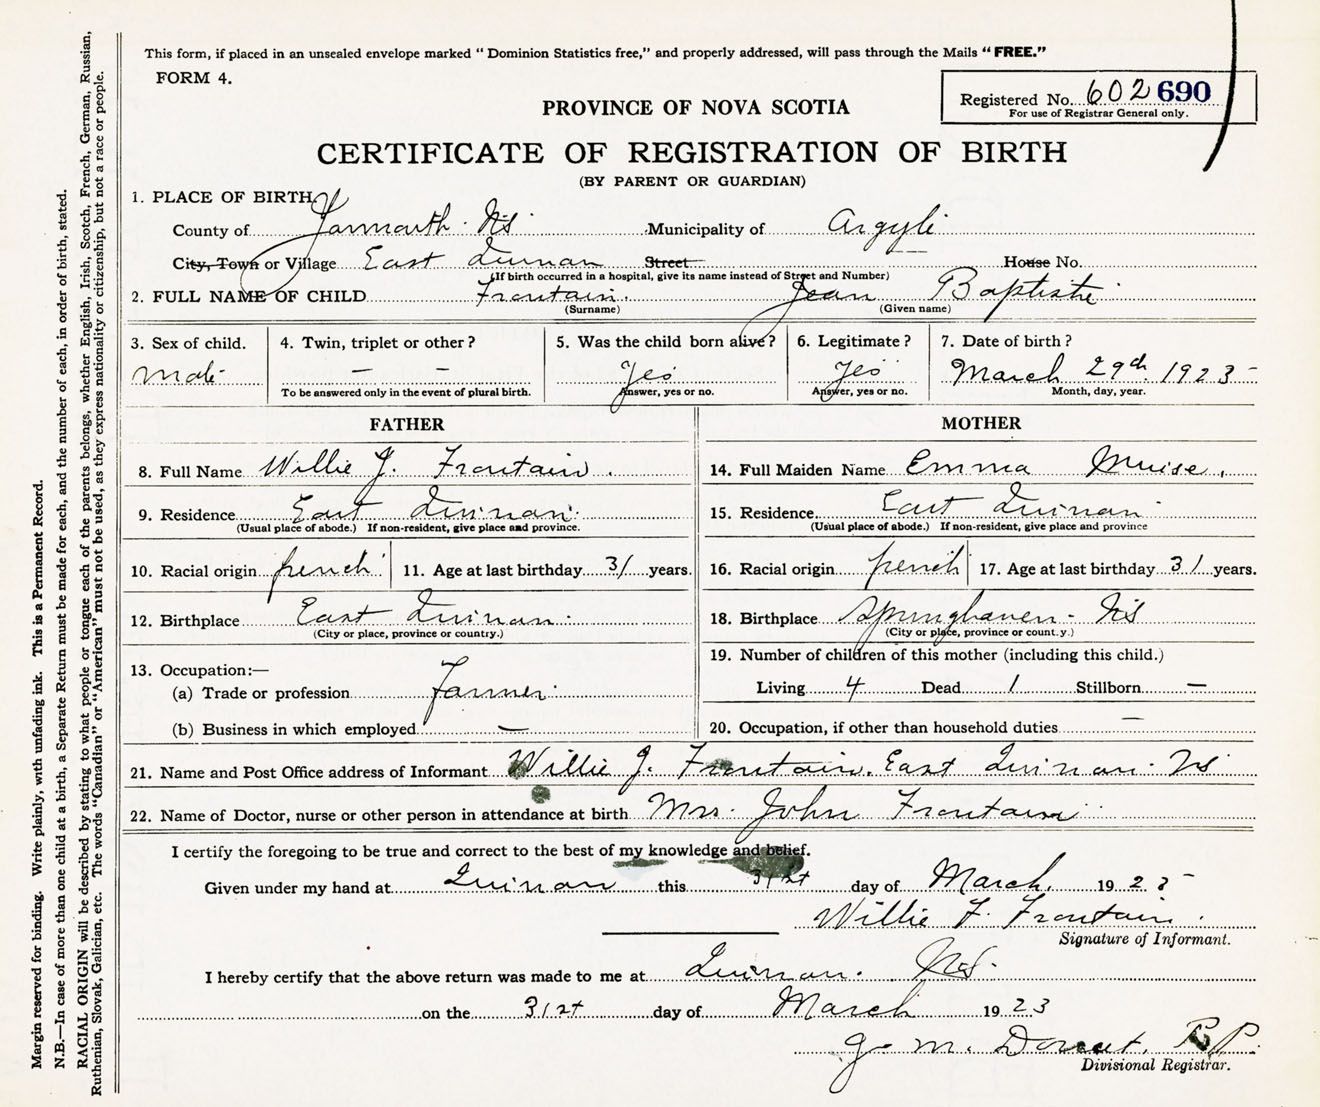 This form, if placed in an unsealed envelope marked "Dominion Statistics free," and properly addressed, will pass through the Mails "FREE."
FORM 4.
Registered No. 602 690
For use of Registrar General only.
PROVINCE OF NOVA SCOTIA
CERTIFICATE OF REGISTRATION OF BIRTH
(BY PARENT OR GUARDIAN)
1. PLACE OF BIRTH
County of Yarmouth NS Municipality of Argyle
City, Town or Village East Quinan Street House No.
(If birth occurred in a hospital, give its name instead of Street and Number)
2. FULL NAME OF CHILD Frontain. Jean Baptiste
(Surname) (Given name)
3. Sex of child. 4. Twin, triplet or other? 5. Was the child born alive? 6. Legitimate? 7. Date of birth?
Male — — Yes Yes March 29d. 1923
To be answered only in the event of plural birth. Answer, yes or no. Answer, yes or no. Month, day, year.
FATHER MOTHER
8. Full Name Willie J. Frontain. 14. Full Maiden Name Emma Muise,
9. Residence East Quinan 15. Residence East Quinan
(Usual place of abode.) If non-resident, give place and province. (Usual place of abode.) If non-resident, give place and province
10. Racial origin french 11. Age at last birthday 31 years. 16. Racial origin french 17. Age at last birthday 31 years.
12. Birthplace East Quinan 18. Birthplace Springhaven - NS
(City or place, province or country.) (City or place, province or count.y.)
13. Occupation:— 19. Number of children of this mother (including this child.)
(a) Trade or profession Farmer Living 4 Dead 1 Stillborn —
(b) Business in which employed — 20. Occupation, if other than household duties —
21. Name and Post Office address of Informant Willie J. Frontain. East Quinan NS
22. Name of Doctor, nurse or other person in attendance at birth Mrs. John Frontain
I certify the foregoing to be true and correct to the best of my knowledge and belief.
Given under my hand at Quinan this 31st day of March, 1923
Willie F. Frontain.
Signature of Informant.
I hereby certify that the above return was made to me at Quinan. NS.
on the 31st day of March 1923
J. M. P.P.
Divisional Registrar.
Margin reserved for binding. Write plainly, with unfading ink. This is a Permanent Record.
N.B.—In case of more than one child at a birth, a Separate Return must be made for each, and the number of each, in order of birth, stated.
RACIAL ORIGIN will be described by stating to what people or tongue each of the parents belongs, whether English, Irish, Scotch, French, German, Russian,
Ruthenian, Slovak, Galician, etc. The words "Canadian" or "American" must not be used, as they express nationality or citizenship, but not a race or people.